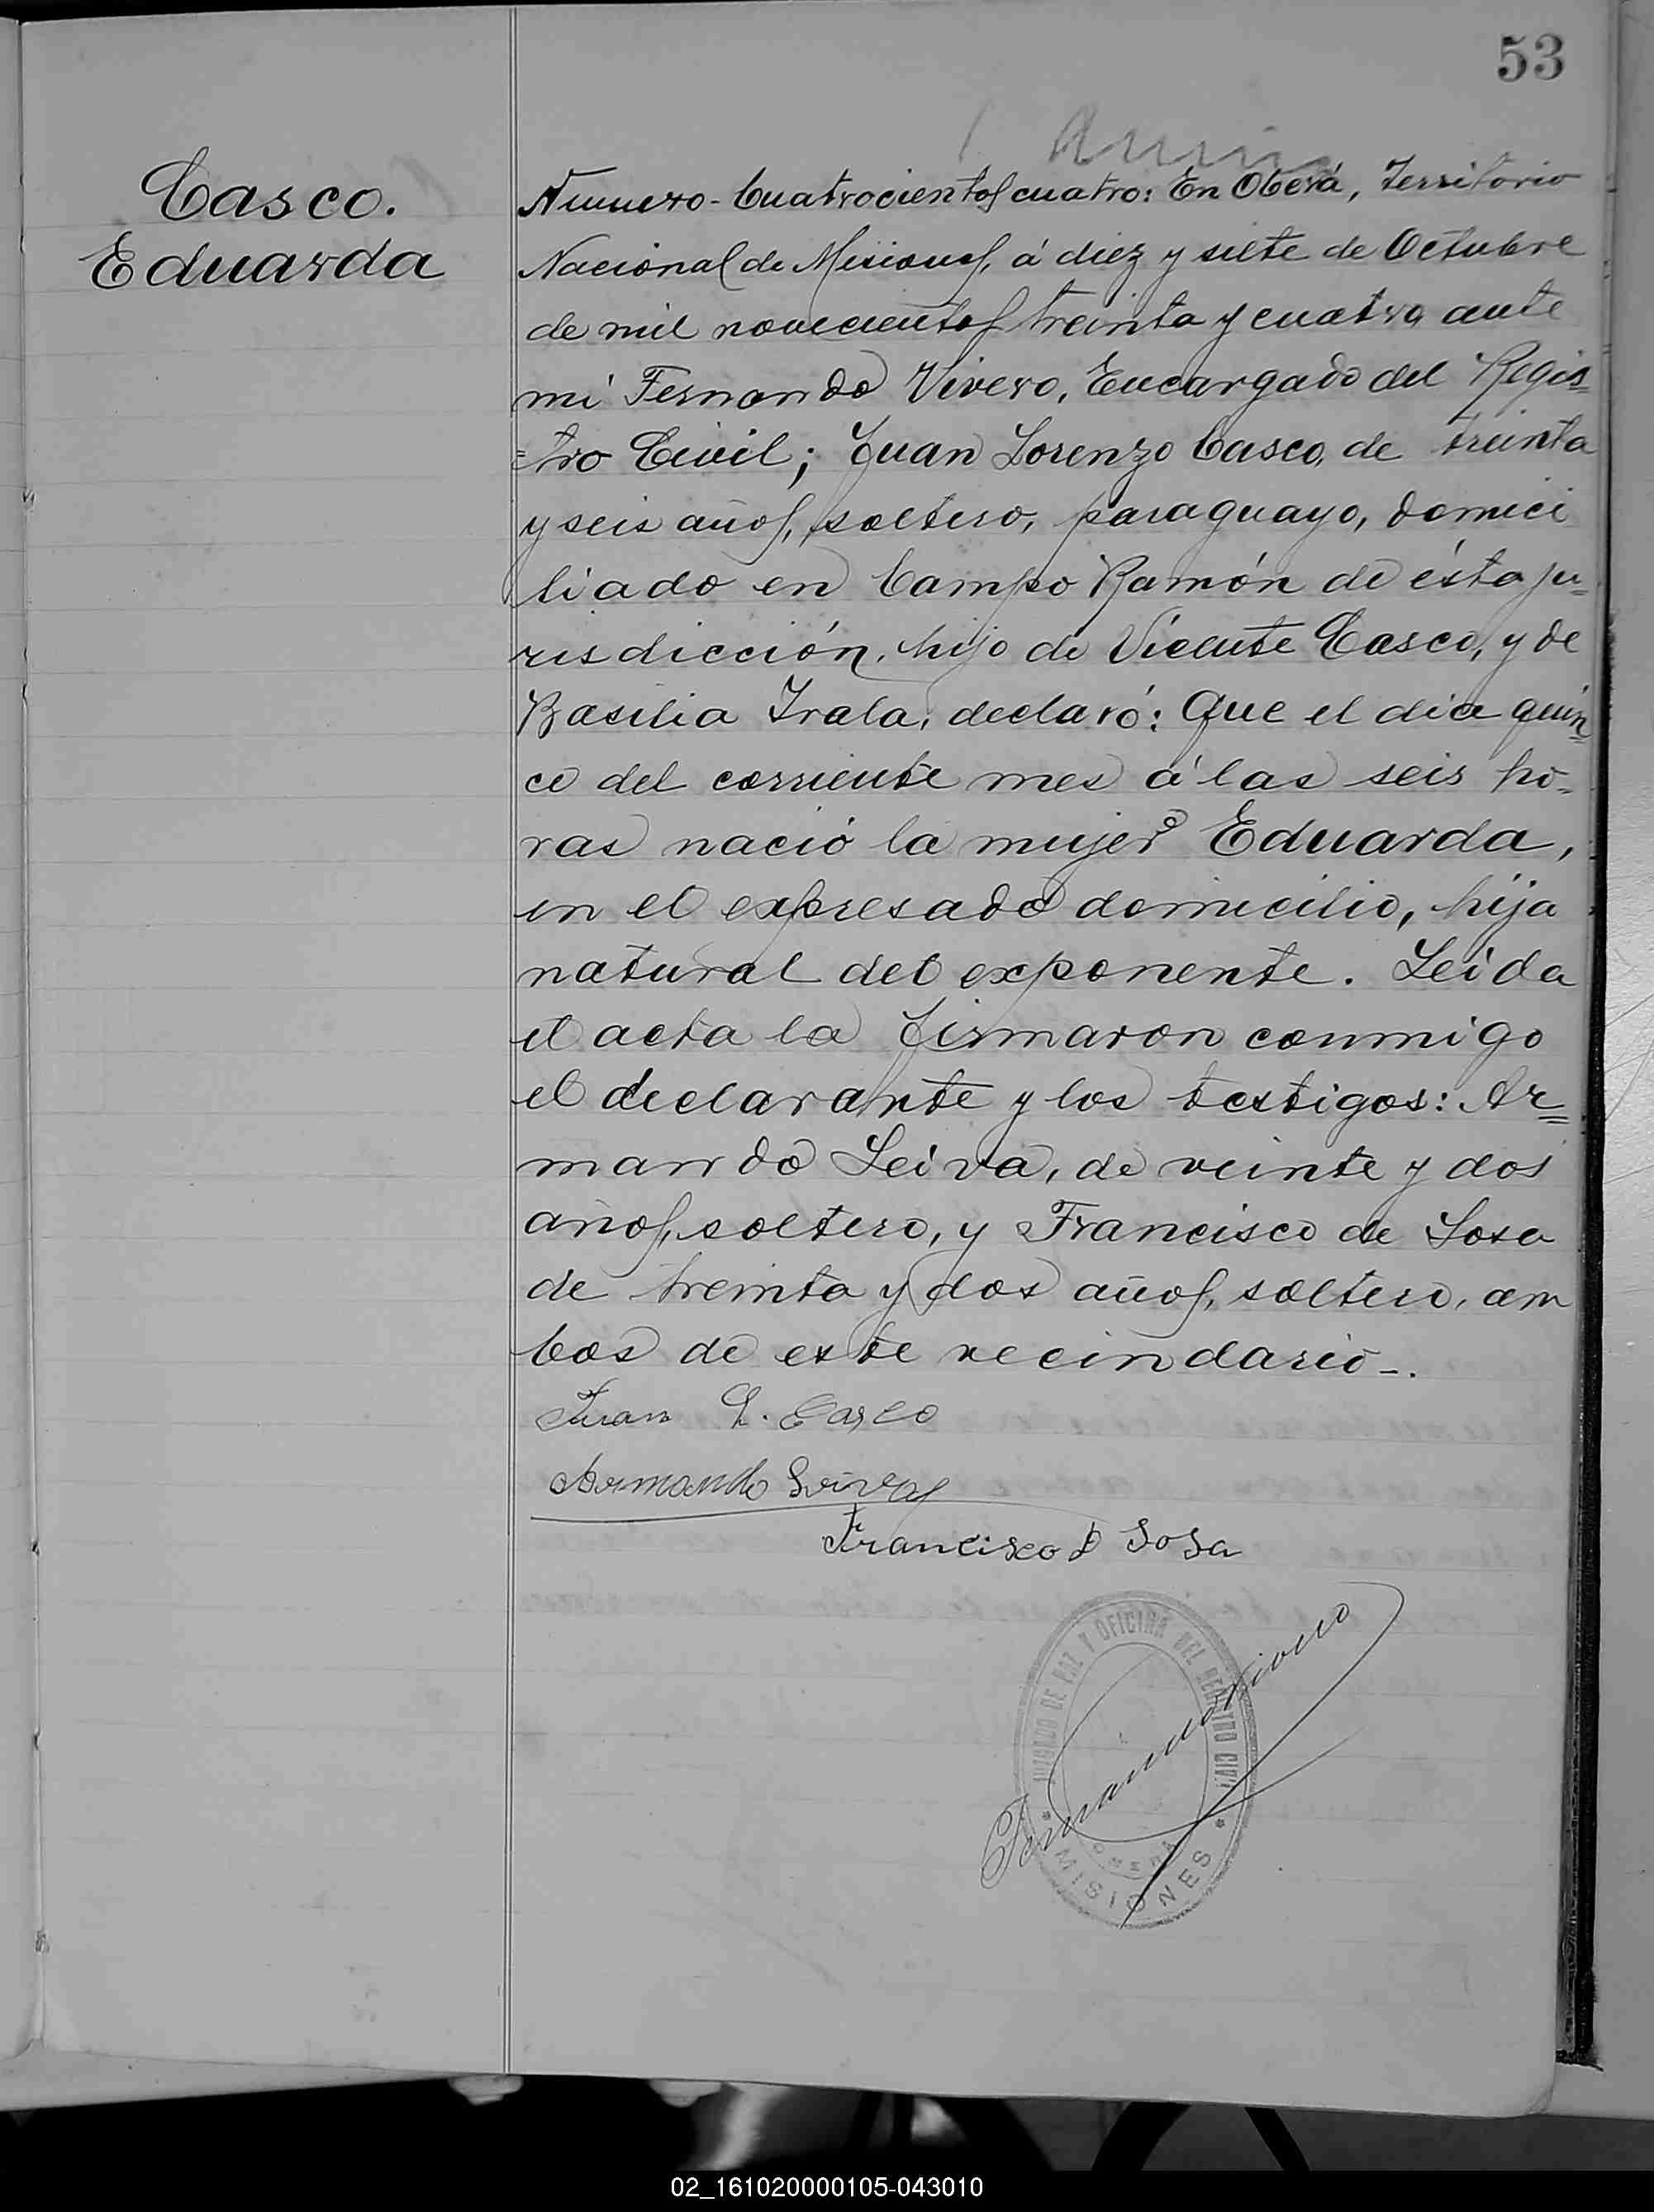 53
Casco.
Eduarda
Numero-Cuatrocientos cuatro: En Oberá, Territorio
Nacional de Misiones, á diez y siete de Octubre
de mil novecientos treinta y cuatro, ante
mi Fernando Vivero, Encargado del Regis=
=tro Civil; Juan Lorenzo Casco, de treinta
y seis años, soltero, paraguayo, domici
liado en Campo Ramón de ésta ju=
risdicción, hijo de Vicente Casco, y de
Basilia Irala, declaró: Que el dia quin=
ce del corriente mes á las seis ho=
ras nació la mujer Eduarda,
en el expresado domicilio, hija
natural del exponente. Leida
el acta la firmaron conmigo
el declarante y los testigos: Ar=
mando Leiva, de veinte y dos
años, soltero, y Francisco de Sosa
de treinta y dos años, soltero, am
bos de este vecindario-.
Juan L. Casco
Armando Leiva
Francisco D Sosa
JUZGADO DE PAZ Y OFICINA DEL REGISTRO CIVIL
Fernando Vivero
MISIONES
02_161020000105-043010